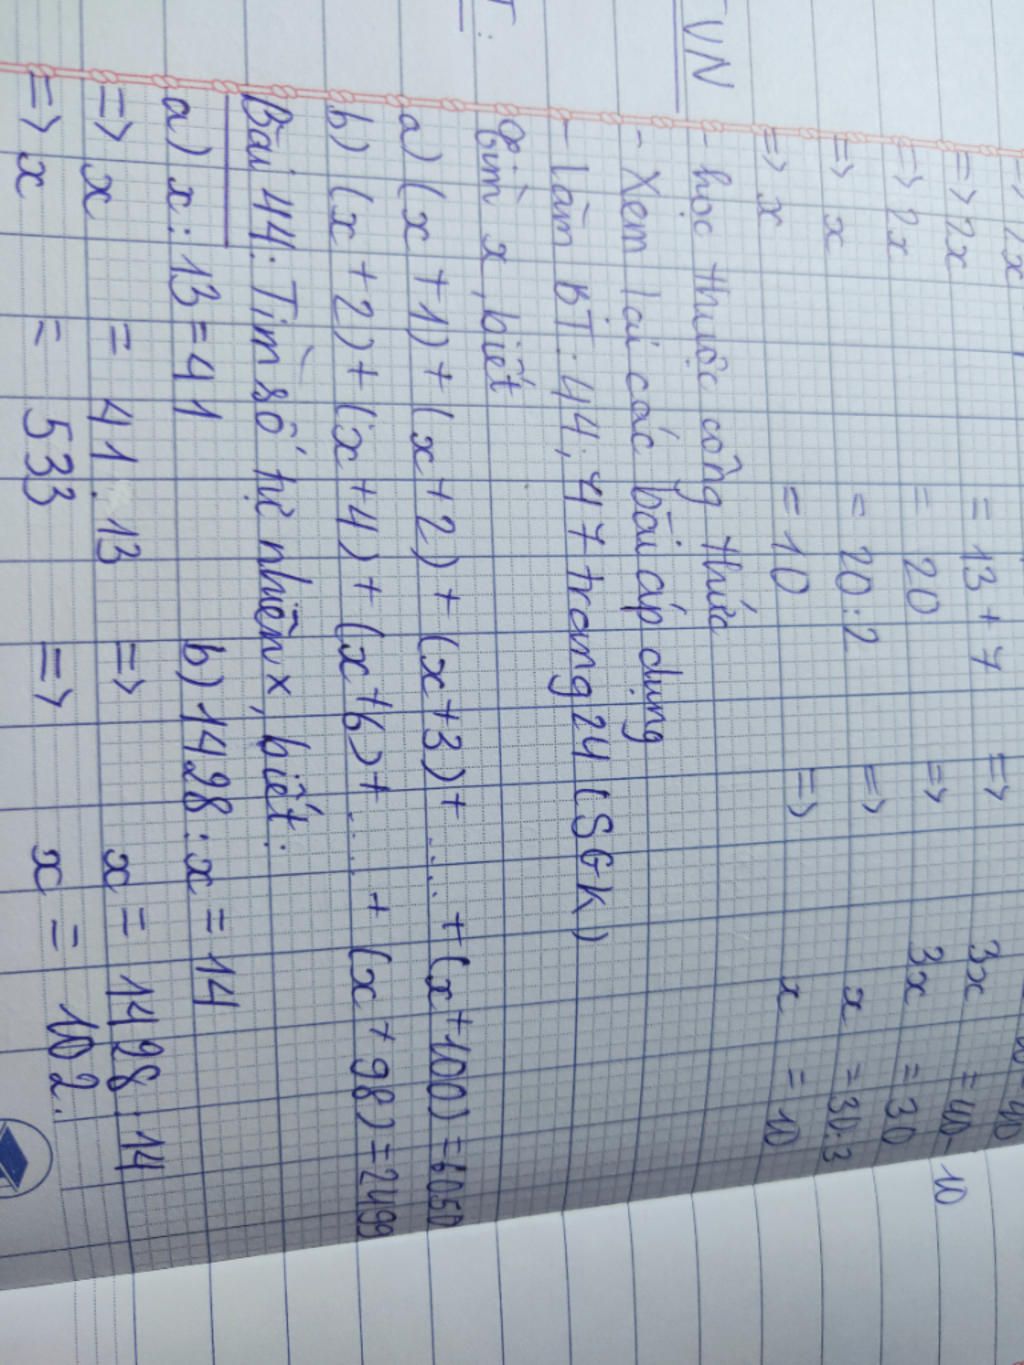 => 2x
=> 2x = 13 + 7 => 3x = 40 - 10
=> 2x = 20 => 3x = 30
=> x = 20 : 2 => x = 30 : 3
=> x = 10 => x = 10
VN
- học thuộc công thức
- Xem lại các bài áp dụng
- làm BT : 44, 47 trang 24 (SGK)
T :
Tìm x, biết
a) (x + 1) + (x + 2) + (x + 3) + .... + (x + 100) = 6050
b) (x + 2) + (x + 4) + (x + 6) + .... + (x + 98) = 2499
Bài 44 : Tìm số tự nhiên x, biết :
a) x : 13 = 41 b) 1428 : x = 14
=> x = 41 . 13 => x = 1428 : 14
=> x = 533 => x = 102.